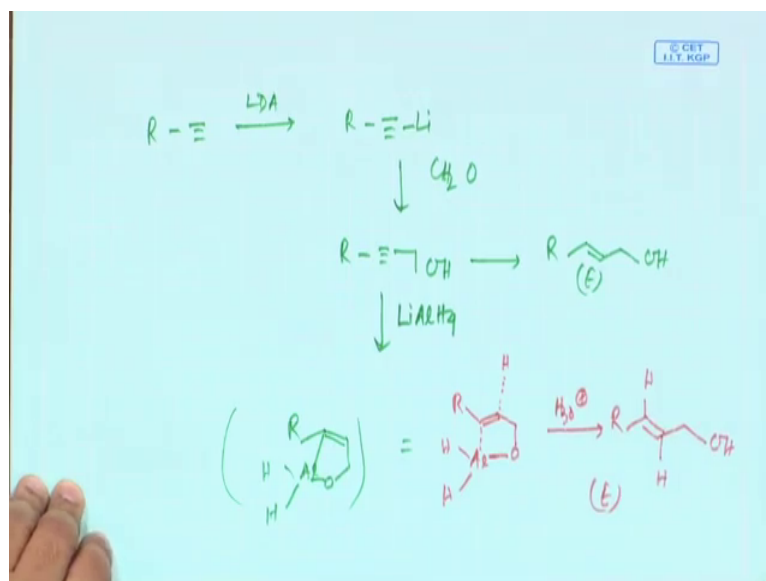 © CET
I.I.T. KGP
R - ≡ LDA R - ≡ - Li
CH2O
R - ≡ OH R OH
(E)
LiAlH4
H
R R H3O⊕ H
H Al O = H Al O R OH
H H H
(E)